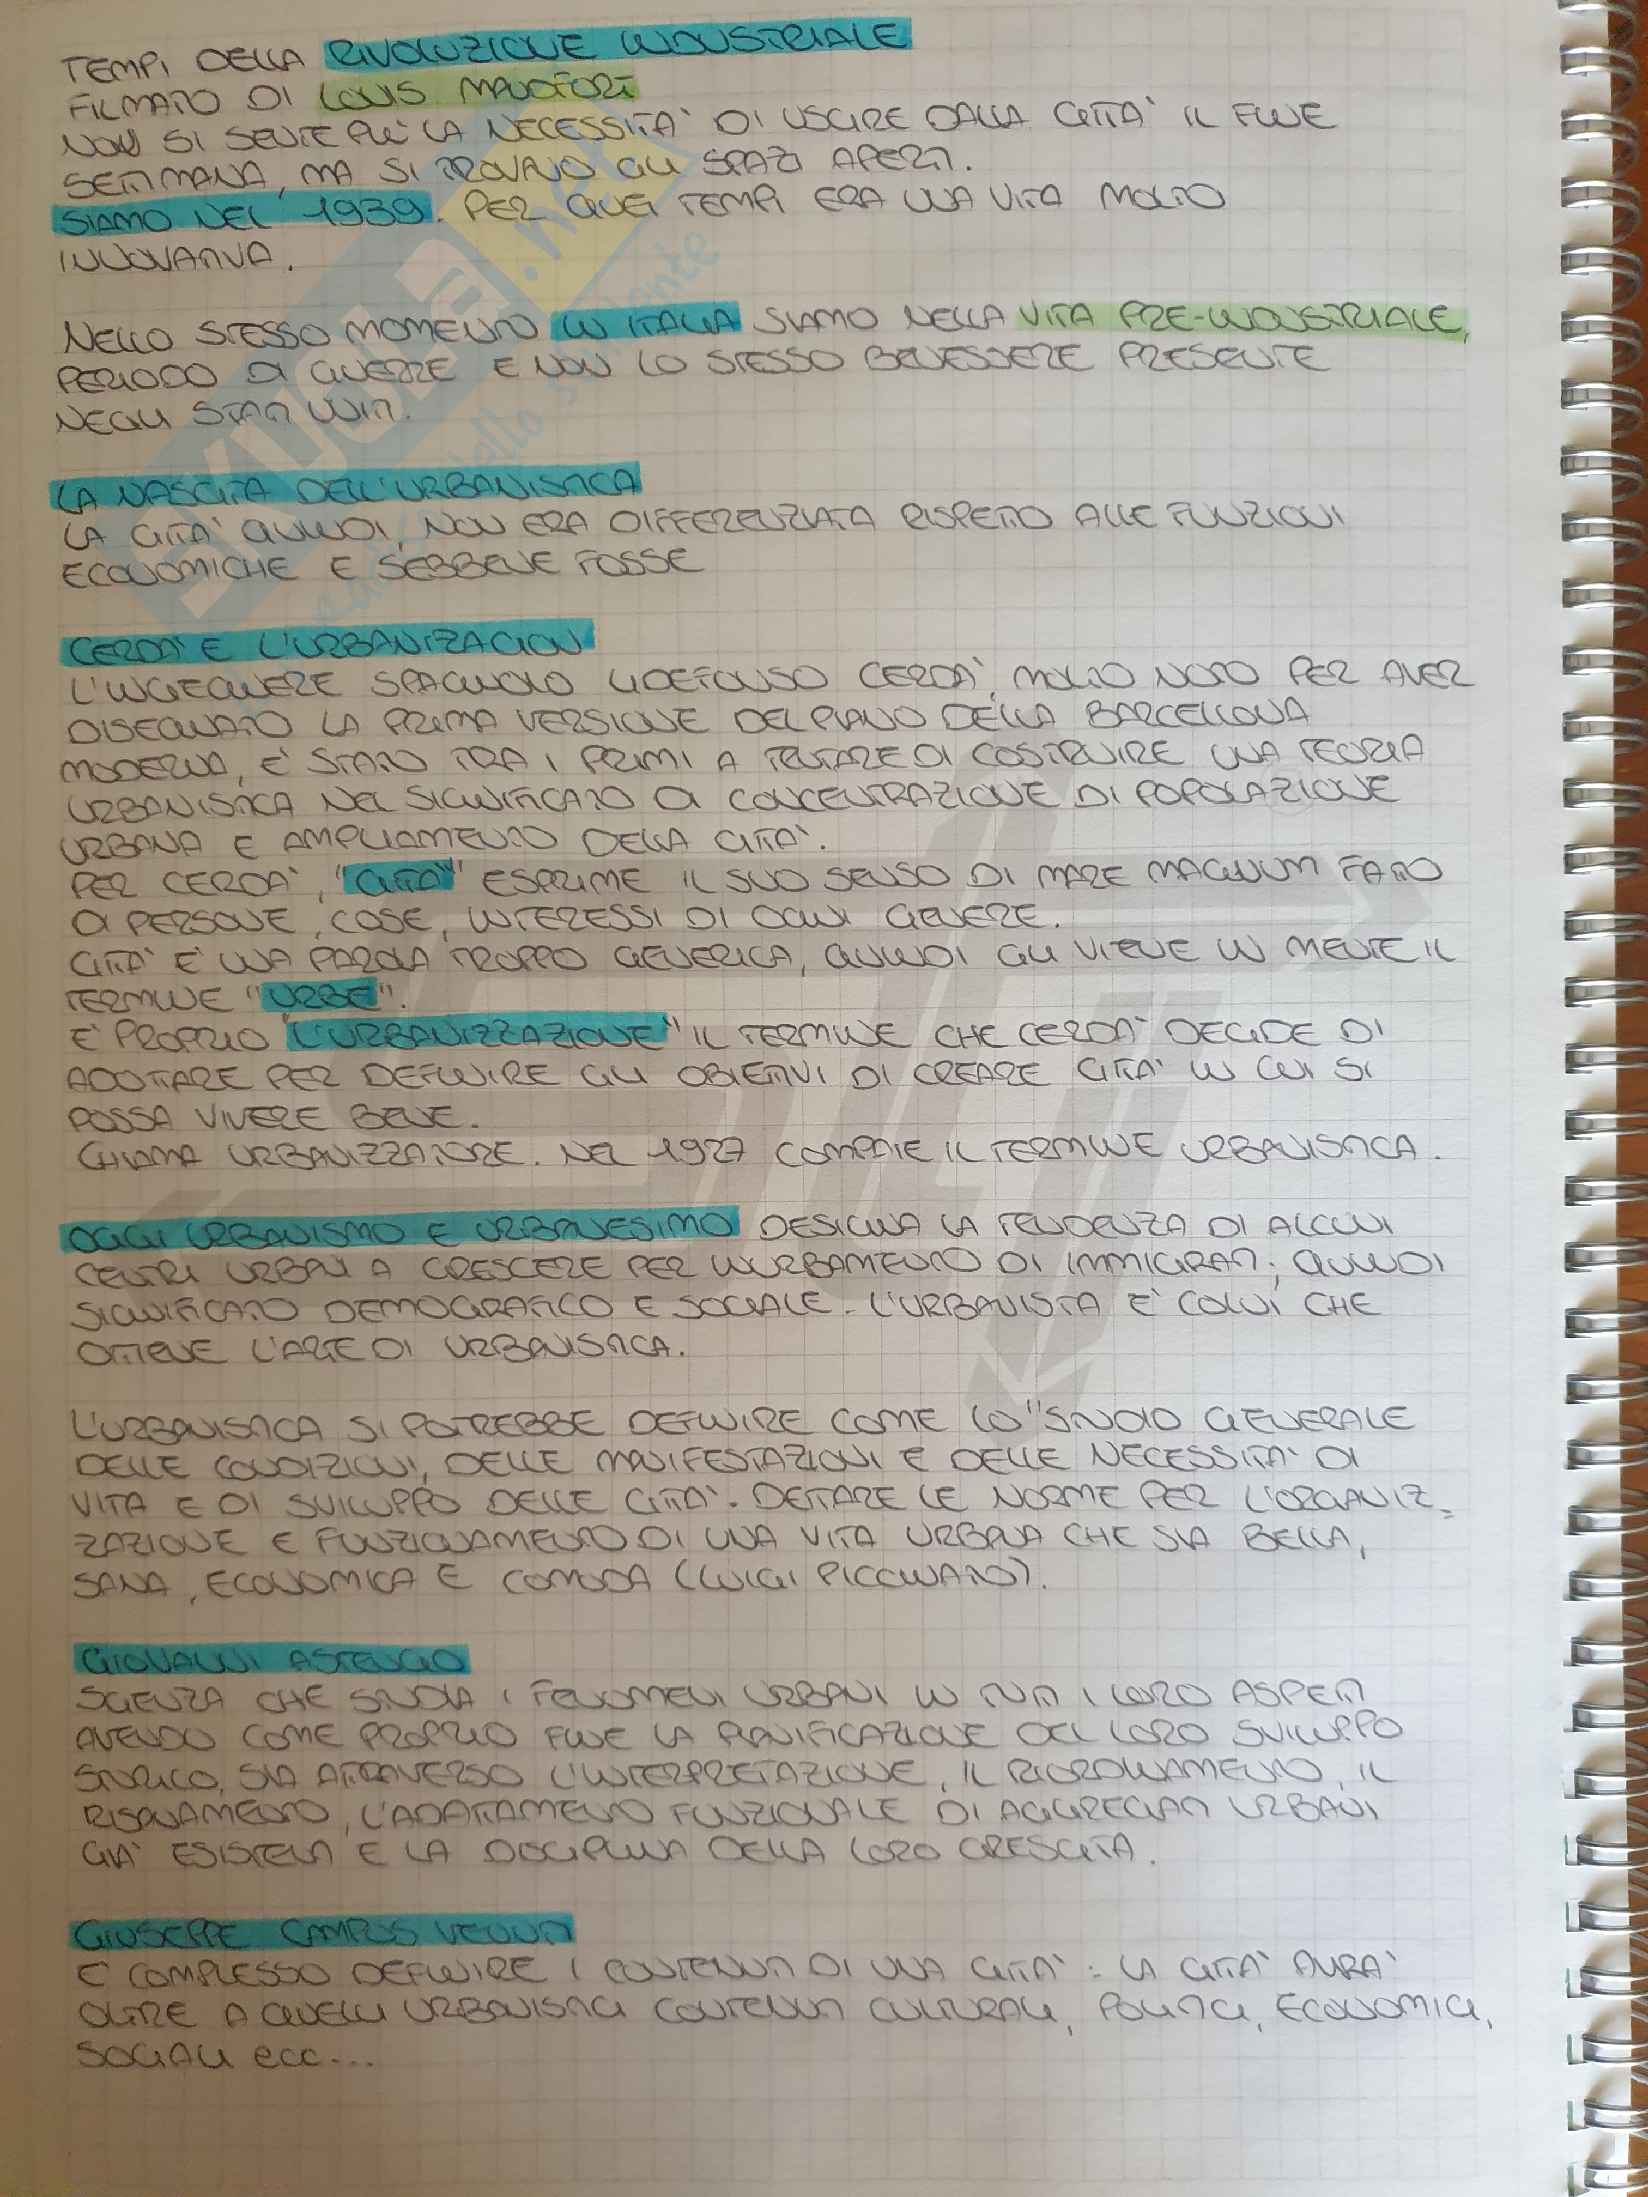 TEMPI DELLA RIVOLUZIONE INDUSTRIALE
FILMATO DI LOUIS MANDFORT
NON SI SENTE PIU' LA NECESSITA' DI USCIRE DALLA CITTA' IL FINE
SETTIMANA, MA SI TROVANO GLI SPAZI APERTI.
SIAMO NEL 1939. PER QUEI TEMPI ERA UNA VITA MOLTO
INNOVATIVA.
NELLO STESSO MOMENTO IN ITALIA SIAMO NELLA VITA PRE-INDUSTRIALE,
PERIODO DI GUERRE E NON LO STESSO BENESSERE PRESENTE
NEGLI STATI UNITI.
LA NASCITA DELL'URBANISTICA
LA CITTA' QUINDI, NON ERA DIFFERENZIATA RISPETTO ALLE FUNZIONI
ECONOMICHE E SEBBENE FOSSE
CERDA' E L'URBANIZACION
L'INGEGNERE SPAGNOLO ILDEFONSO CERDA', MOLTO NOTO PER AVER
DISEGNATO LA PRIMA VERSIONE DEL PIANO DELLA BARCELLONA
MODERNA, E' STATO TRA I PRIMI A TENTARE DI COSTRUIRE UNA TEORIA
URBANISTICA NEL SIGNIFICATO DI CONCENTRAZIONE DI POPOLAZIONE
URBANA E AMPLIAMENTO DELLA CITTA'.
PER CERDA', "CITTA'" ESPRIME IL SUO SENSO DI MARE MAGNUM FATTO
DI PERSONE, COSE, INTERESSI DI OGNI GENERE.
CITTA' E' UNA PAROLA TROPPO GENERICA, QUINDI GLI VIENE IN MENTE IL
TERMINE "URBE".
E' PROPRIO "L'URBANIZZAZIONE" IL TERMINE CHE CERDA' DECIDE DI
ADOTTARE PER DEFINIRE GLI OBIETTIVI DI CREARE CITTA' IN CUI SI
POSSA VIVERE BENE.
CHIAMA URBANIZZATORE. NEL 1927 COMPARE IL TERMINE URBANISTICA.
OGGI URBANISMO E URBANESIMO DESIGNA LA TENDENZA DI ALCUNI
CENTRI URBANI A CRESCERE PER INURBAMENTO DI IMMIGRATI; QUINDI
SIGNIFICATO DEMOGRAFICO E SOCIALE. L'URBANISTA E' COLUI CHE
OTTIENE L'ARTE DI URBANISTICA.
L'URBANISTICA SI POTREBBE DEFINIRE COME LO "STUDIO GENERALE
DELLE CONDIZIONI, DELLE MANIFESTAZIONI E DELLE NECESSITA' DI
VITA E DI SVILUPPO DELLE CITTA'. DETTARE LE NORME PER L'ORGANIZ-
ZAZIONE E FUNZIONAMENTO DI UNA VITA URBANA CHE SIA BELLA,
SANA, ECONOMICA E COMODA (LUIGI PICCINATO).
GIOVANNI ASTENGO
SCIENZA CHE STUDIA I FENOMENI URBANI IN TUTTI I LORO ASPETTI
AVENDO COME PROPRIO FINE LA PIANIFICAZIONE DEL LORO SVILUPPO
STORICO, SIA ATTRAVERSO L'INTERPRETAZIONE, IL RIORDINAMENTO, IL
RISANAMENTO, L'ADATTAMENTO FUNZIONALE DI AGGREGATI URBANI
GIA' ESISTENTI E LA DISCIPLINA DELLA LORO CRESCITA.
GIUSEPPE CAMPOS VENUTI
E' COMPLESSO DEFINIRE I CONTENUTI DI UNA CITTA': LA CITTA' AVRA'
OLTRE A QUELLI URBANISTICI CONTENUTI CULTURALI, POLITICI, ECONOMICI,
SOCIALI ecc...
SKUOLA.net